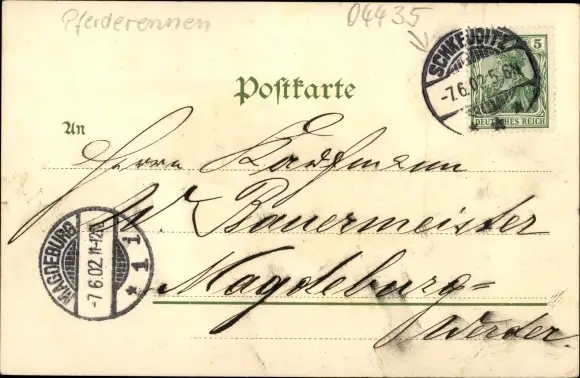 Pferderennen
04435
SCHKEUDITZ
-7.6.02.5-6N
5
DEUTSCHES REICH
Postkarte
An
Herrn Kaufmann
W. Bauermeister
Magdeburg=
Werder.
MAGDEBURG
-7.6.02.11-12N
* 1 i